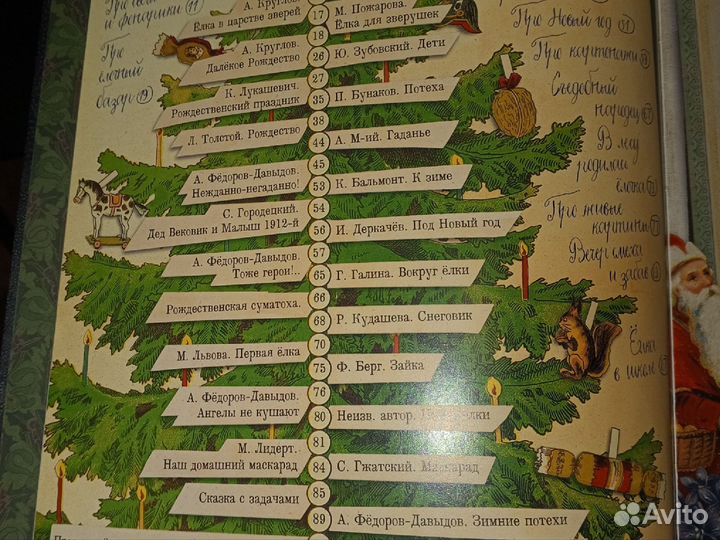 и фонарики (11)
А. Круглов.
Ёлка в царстве зверей
17 М. Пожарова.
Ёлка для зверушек
18
А. Круглов.
Далёкое Рождество
26 Ю. Зубовский. Дети
27
К. Лукашевич.
Рождественский праздник
35 П. Бунаков. Потеха
38
Л. Толстой. Рождество
44 А. М-ий. Гаданье
45
А. Фёдоров-Давыдов.
Нежданно-негаданно!
53 К. Бальмонт. К зиме
54
С. Городецкий.
Дед Вековик и Малыш 1912-й
56 И. Деркачёв. Под Новый год
57
А. Фёдоров-Давыдов.
Тоже герои!..
65 Г. Галина. Вокруг ёлки
66
Рождественская суматоха.
68 Р. Кудашева. Снеговик
70
М. Львова. Первая ёлка
75 Ф. Берг. Зайка
76
А. Фёдоров-Давыдов.
Ангелы не кушают
80 Неизв. автор.
81
М. Лидерт.
Наш домашний маскарад
84 С. Гжатский. Маскарад
85
Сказка с задачами
89 А. Фёдоров-Давыдов. Зимние потехи
Про
ёлочный
базар (19)
Про Новый год
Про картонажи
Съедобный
народец
В лесу
родилась
ёлочка
Про живые
картины
Вечер смеха
и забав
Ёлка
в школе
Avito